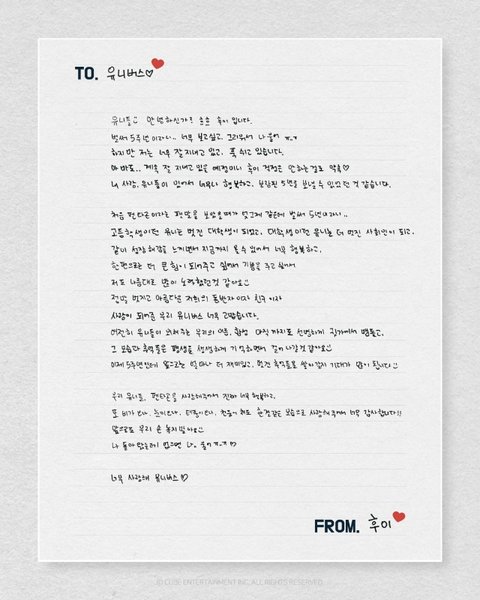 TO. 유니버스♡
유니들 안녕하신가? 호호 후이 입니다.
벌써 5주년 이라니.. 너무 보고싶고 그리워서 나 울어 ㅠㅠ
하지만 저는 너무 잘 지내고 있고, 푹 쉬고 있습니다.
계속 잘 지내고 있을 예정이니 후이 걱정은 안하는걸로 약속♡
내 사랑, 유니들이 있어서 너무나 행복하고, 보람찬 5년을 보낼 수 있었던 것 같습니다.
처음 펜타곤이라는 팬말을 보았을때가 엊그제 같은데 벌써 5년이라니..
고등학생이던 유니는 멋진 대학생이 되었고, 대학생이던 유니는 더 멋진 사회인이 되고.
같이 성장해감을 느끼면서 지금까지 올 수 있어서 너무 행복하고,
한편으로는 더 큰 힘이 되어주고 싶어서 기쁨을 주고 싶어서
저도 나름대로 많이 노력했던것 같아요
전방 멋지고 아름다운 저희의 동반자이자 친구이자
사랑이 되어준 우리 유니버스 너무 고맙습니다.
여전히 유니들이 보내주는 우리의 이름, 함성 아직까지도 선명하게 귓가에서 맴돌고,
그 모습과 추억들은 평생을 생생하게 기억하면서 살아나갈것 같아요
이제 5주년인데 앞으로는 얼마나 더 재미있고, 멋진 추억들로 쌓아갈지 기대가 많이 됩니다
우리 유니들, 펜타곤을 사랑해주어서 진짜 너무 행복하고,
또 비가 오나, 눈이 오나, 더우나 추우나, 한결같은 모습으로 사랑해주어서 너무 감사합니다!!
앞으로도 우리 손 놓지 말아요
나 돌아왔는데 없으면 나.. 울어 ㅠㅠ♡
너무 사랑해 유니버스♡
FROM. 후이
© CUBE ENTERTAINMENT INC. ALL RIGHTS RESERVED.